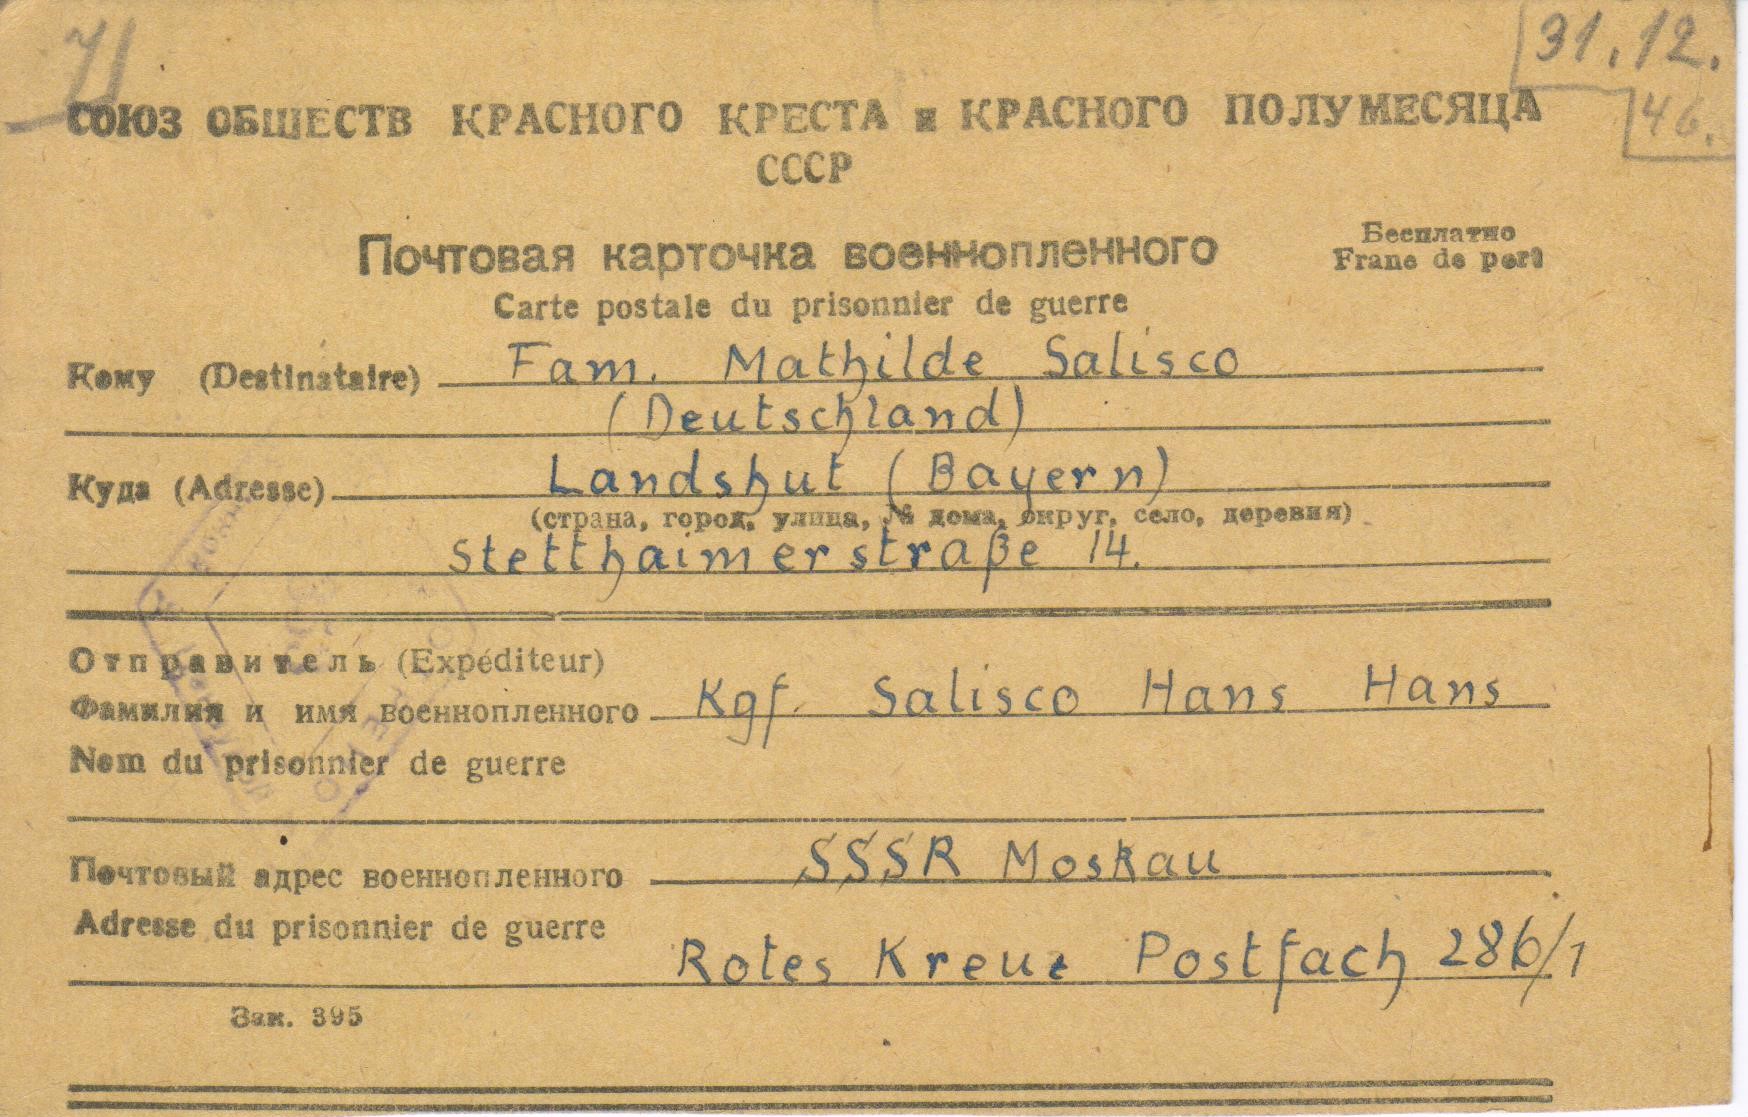 71
31.12.
46.
СОЮЗ ОБЩЕСТВ КРАСНОГО КРЕСТА и КРАСНОГО ПОЛУМЕСЯЦА
СССР
Почтовая карточка военнопленного
Бесплатно
Franc de port
Carte postale du prisonnier de guerre
Кому (Destinataire) Fam. Mathilde Salisco
(Deutschland)
Куда (Adresse) Landshut (Bayern)
(страна, город, улица, № дома, округ, село, деревня)
Stetthaimerstraße 14.
Отправитель (Expéditeur)
Фамилия и имя военнопленного Kgf. Salisco Hans Hans
Nom du prisonnier de guerre
Почтовый адрес военнопленного SSSR Moskau
Adresse du prisonnier de guerre
Rotes Kreuz Postfach 286/1
Зак. 395